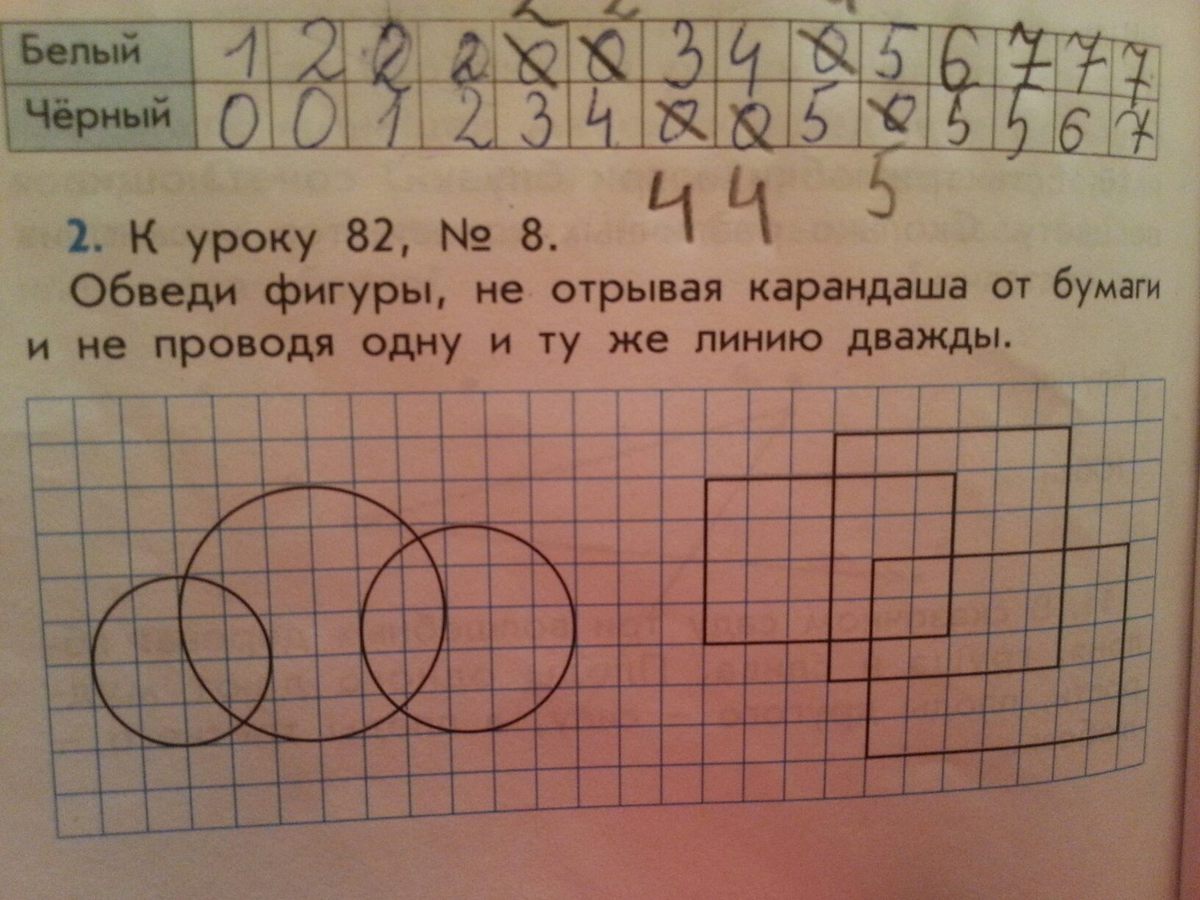 Белый 1 2 2 2 0 0 3 4 0 5 6 7 7 7
Чёрный 0 0 1 2 3 4 0 0 5 0 5 5 6 7
4 4 5
2. К уроку 82, № 8.
Обведи фигуры, не отрывая карандаша от бумаги
и не проводя одну и ту же линию дважды.